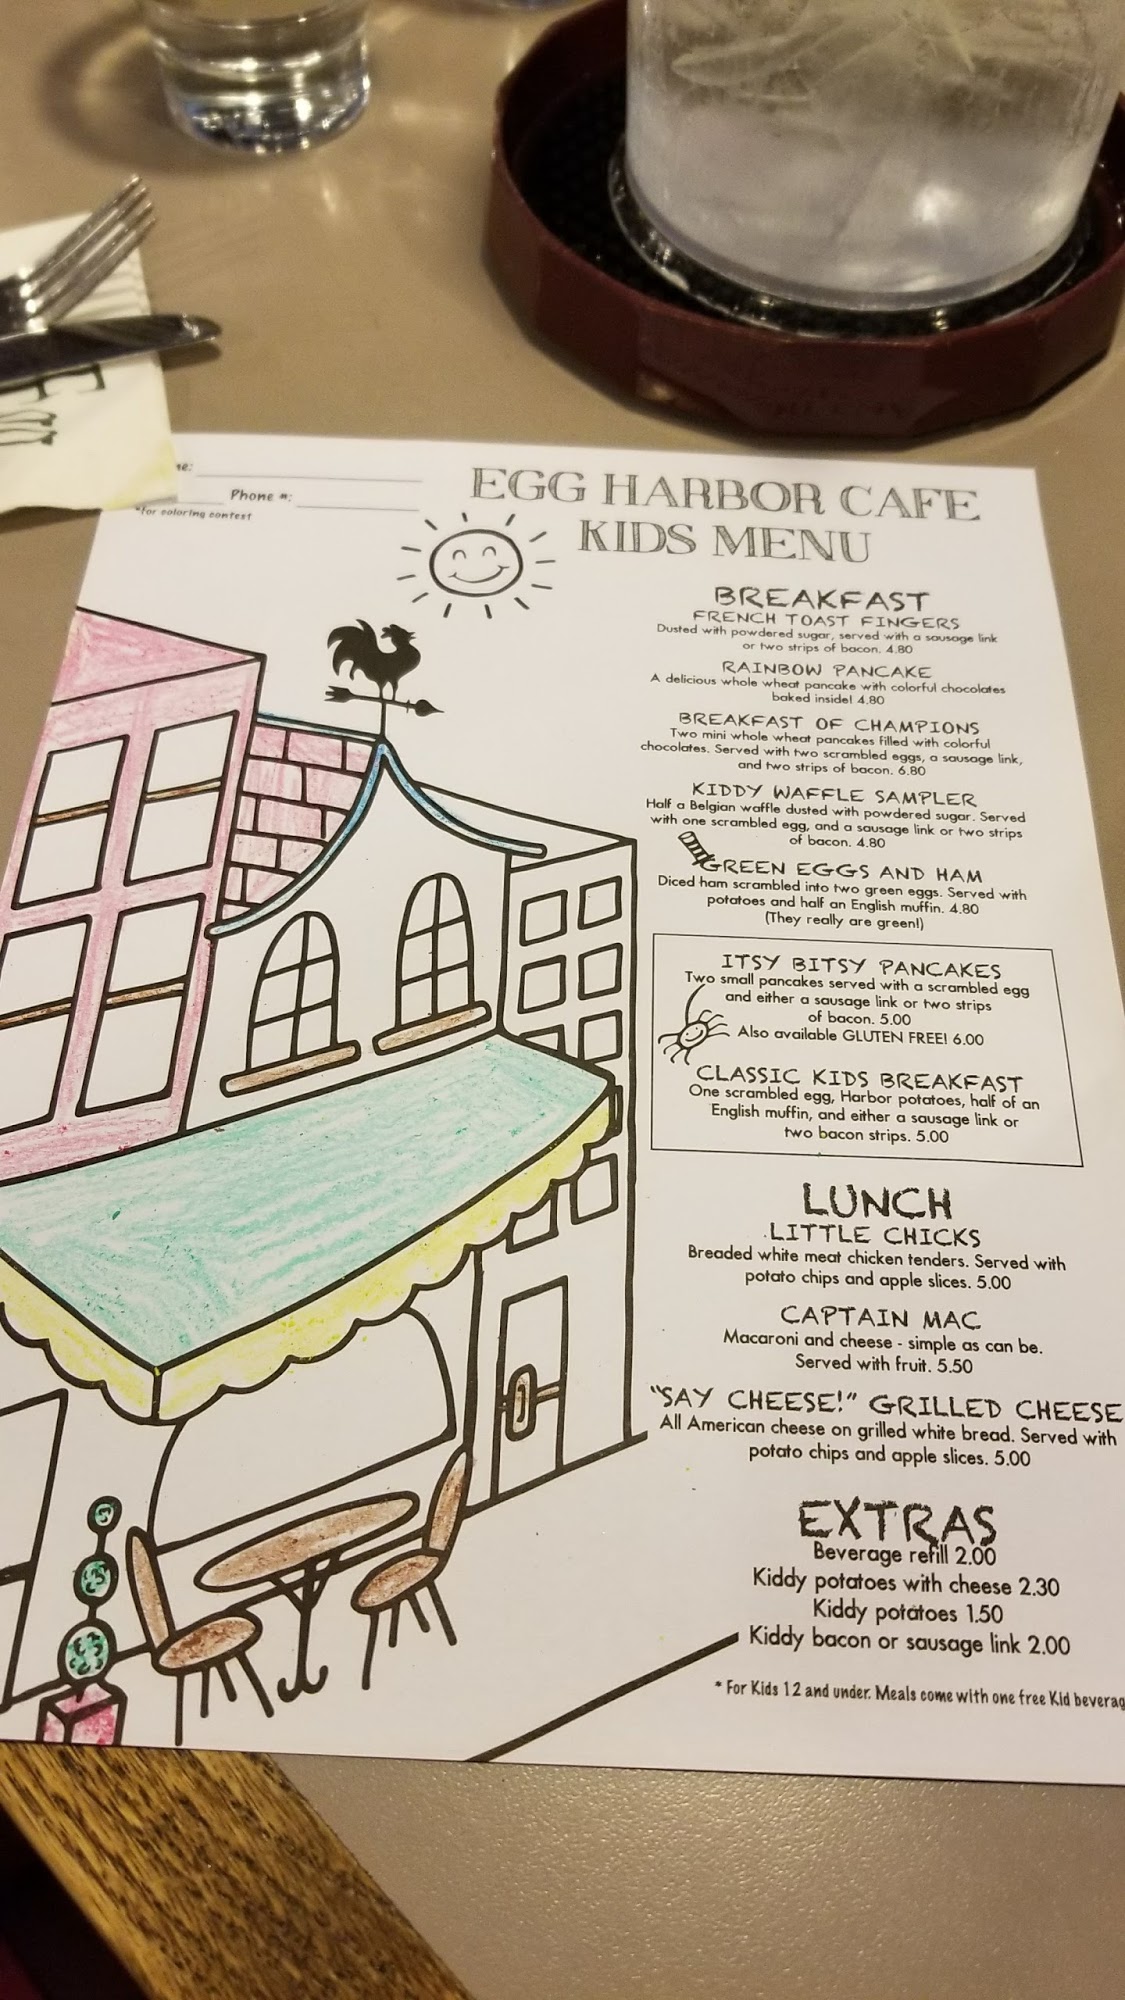 Phone #:
*for coloring contest
EGG HARBOR CAFE
KIDS MENU
BREAKFAST
FRENCH TOAST FINGERS
Dusted with powdered sugar, served with a sausage link
or two strips of bacon. 4.80
RAINBOW PANCAKE
A delicious whole wheat pancake with colorful chocolates
baked inside! 4.80
BREAKFAST OF CHAMPIONS
Two mini whole wheat pancakes filled with colorful
chocolates. Served with two scrambled eggs, a sausage link,
and two strips of bacon. 6.80
KIDDY WAFFLE SAMPLER
Half a Belgian waffle dusted with powdered sugar. Served
with one scrambled egg, and a sausage link or two strips
of bacon. 4.80
GREEN EGGS AND HAM
Diced ham scrambled into two green eggs. Served with
potatoes and half an English muffin. 4.80
(They really are green!)
ITSY BITSY PANCAKES
Two small pancakes served with a scrambled egg
and either a sausage link or two strips
of bacon. 5.00
Also available GLUTEN FREE! 6.00
CLASSIC KIDS BREAKFAST
One scrambled egg, Harbor potatoes, half of an
English muffin, and either a sausage link or
two bacon strips. 5.00
LUNCH
LITTLE CHICKS
Breaded white meat chicken tenders. Served with
potato chips and apple slices. 5.00
CAPTAIN MAC
Macaroni and cheese - simple as can be.
Served with fruit. 5.50
"SAY CHEESE!" GRILLED CHEESE
All American cheese on grilled white bread. Served with
potato chips and apple slices. 5.00
EXTRAS
Beverage refill 2.00
Kiddy potatoes with cheese 2.30
Kiddy potatoes 1.50
Kiddy bacon or sausage link 2.00
* For Kids 12 and under. Meals come with one free Kid